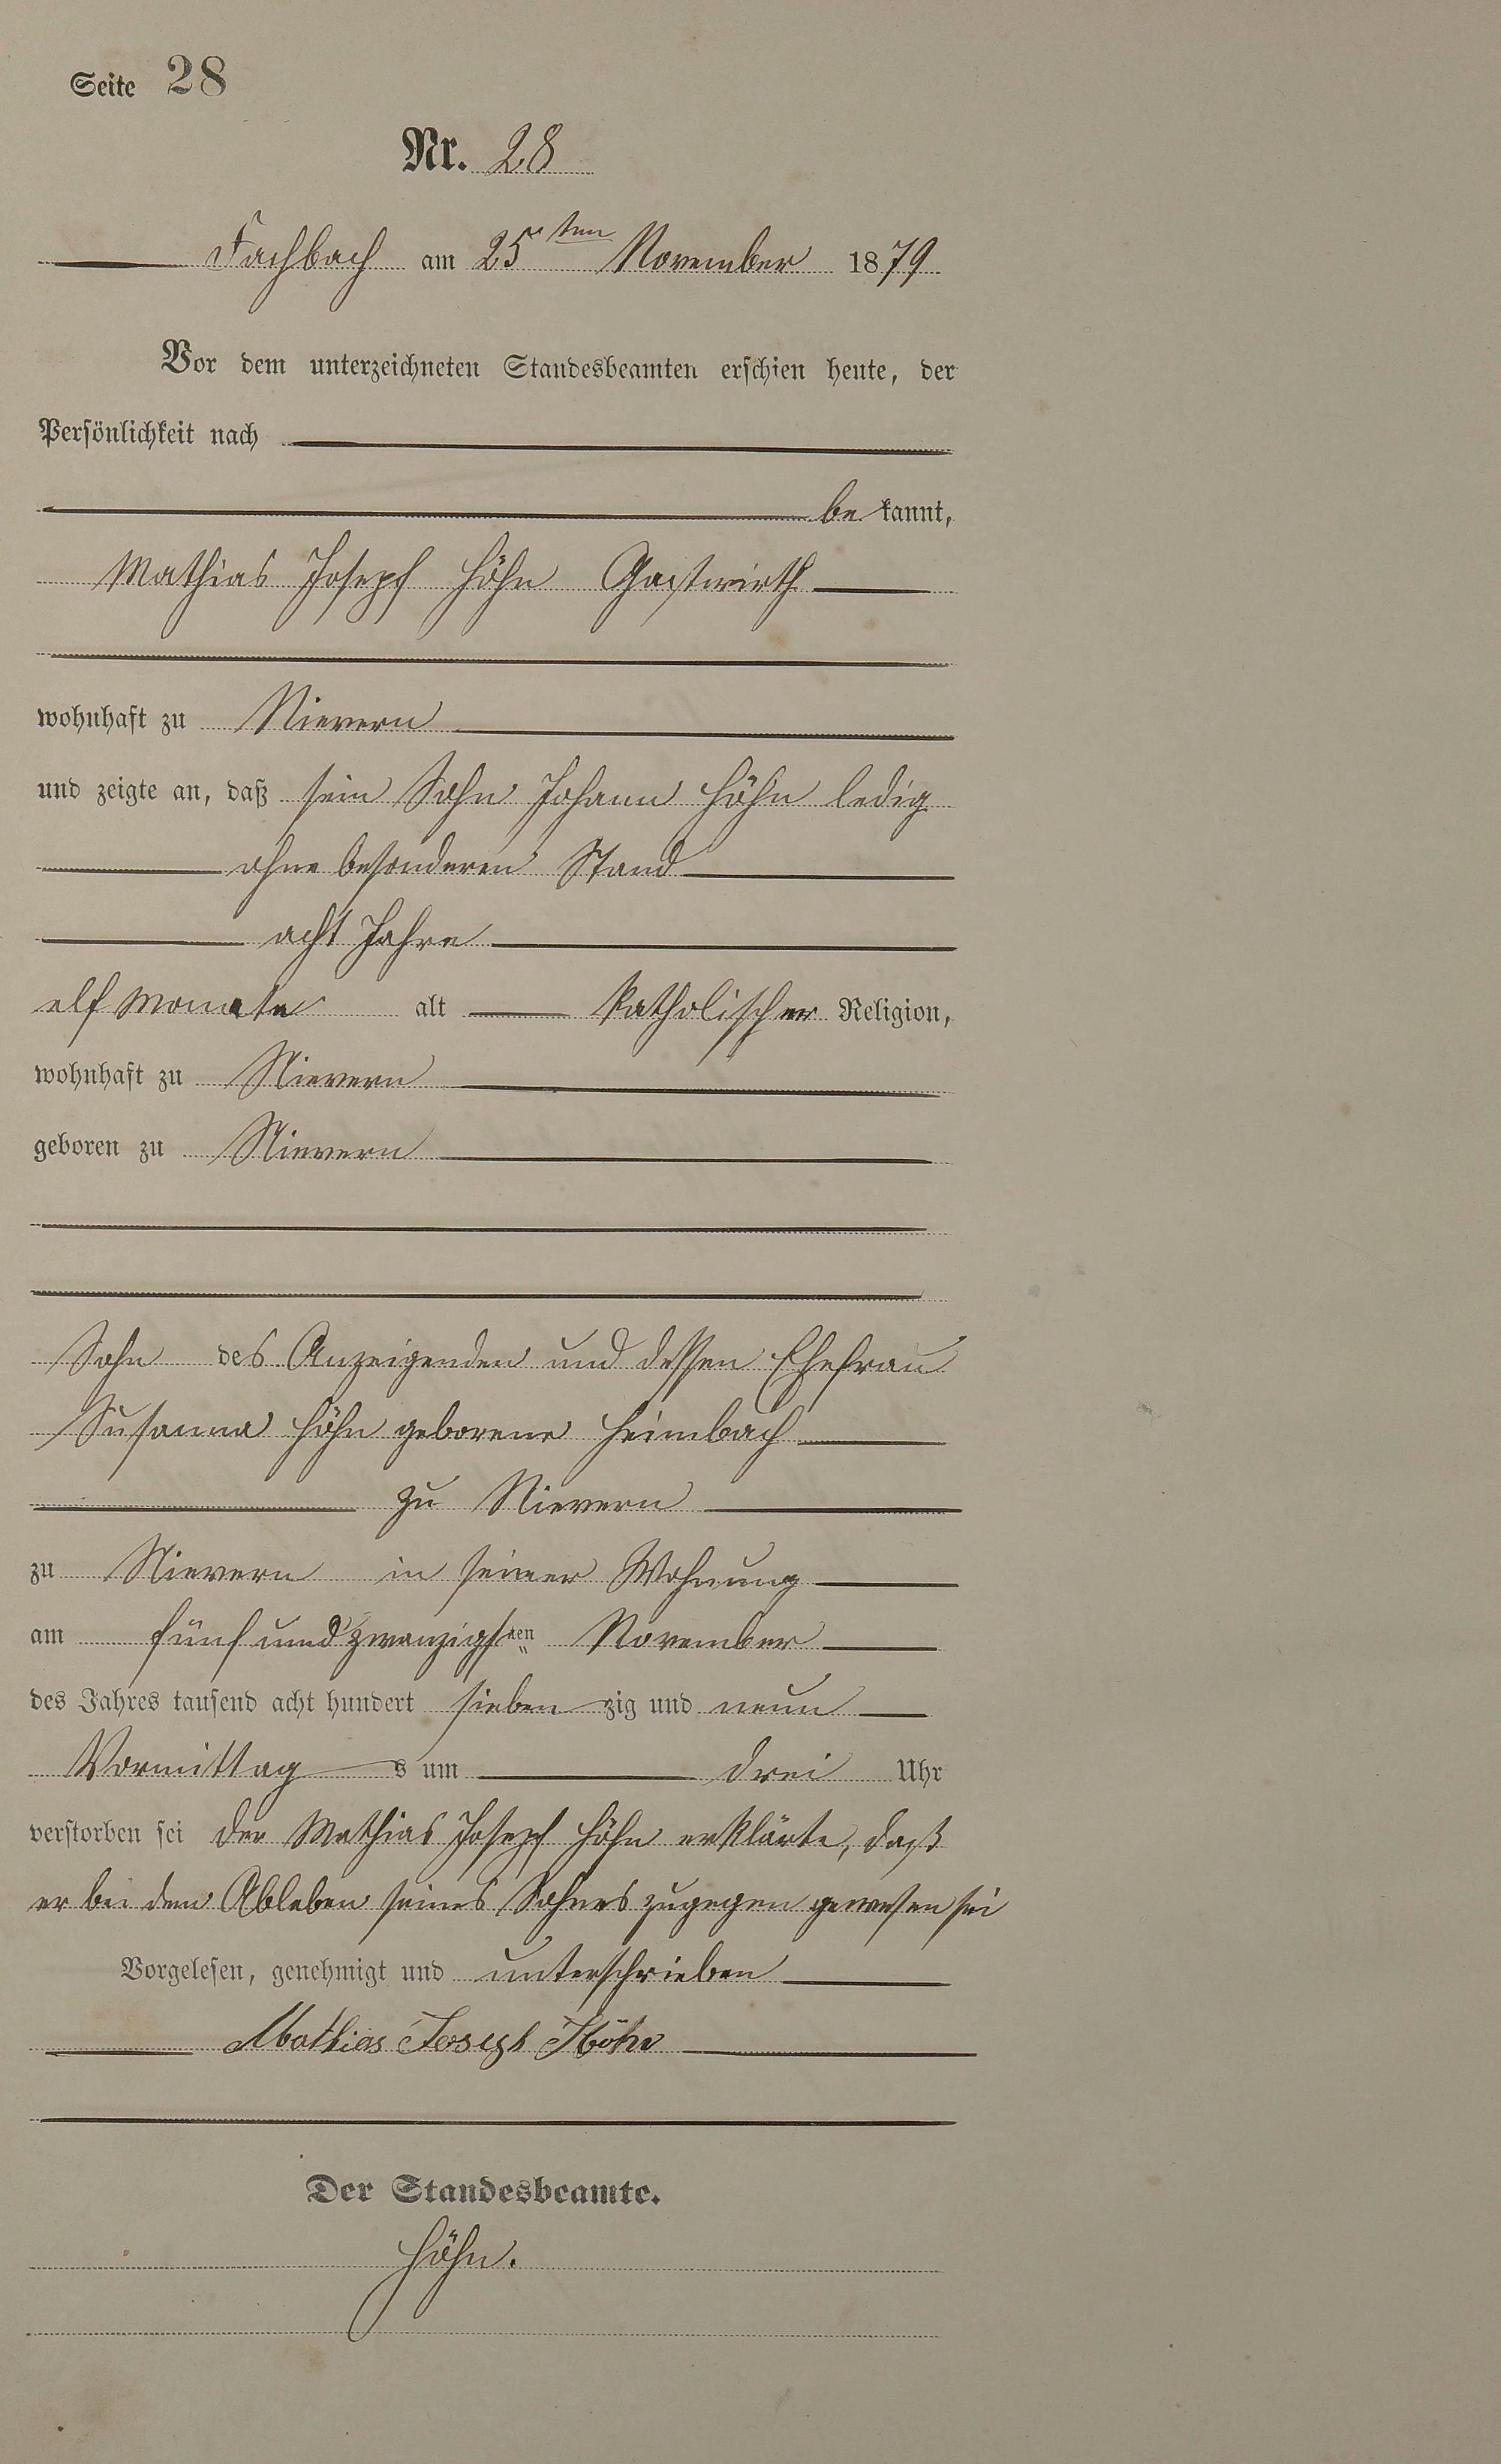 Seite 28
Nr. 28
Fachbach am 25ten November 1879
Vor dem unterzeichneten Standesbeamten erschien heute, der
Persönlichkeit nach
be kannt,
Mathias Joseph Höhn Gastwirth
wohnhaft zu Nievern
und zeigte an, daß sein Sohn Johann Höhn ledig
ohne besonderen Stand
acht Jahre
elf Monate alt katholischer Religion,
wohnhaft zu Nievern
geboren zu Nievern
Sohn des Anzeigenden und dessen Ehefrau
Susanna Höhn geborene Heimbach
zu Nievern
zu Nievern in seiner Wohnung
am fünf und zwanzigsten November
des Jahres tausend acht hundert sieben zig und neun
Vormittag s um drei Uhr
verstorben sei der Mathias Joseph Höhn erklärte, daß
er bei dem Ableben seines Sohnes zugegen gewesen sei
Vorgelesen, genehmigt und unterschrieben
Mathias Joseph Höhn
Der Standesbeamte.
Höhn.